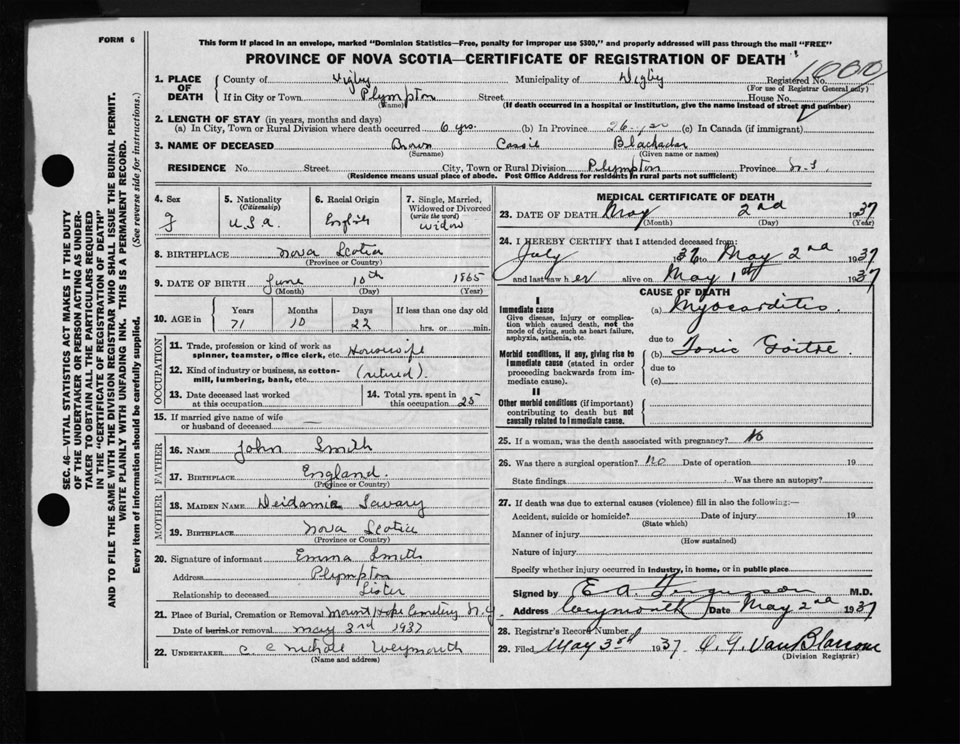 FORM 6
This form if placed in an envelope, marked "Dominion Statistics—Free, penalty for improper use $300," and properly addressed will pass through the mail "FREE"
PROVINCE OF NOVA SCOTIA—CERTIFICATE OF REGISTRATION OF DEATH
1. PLACE OF DEATH County of Digby Municipality of Digby Registered No.
(For use of Registrar General only)
If in City or Town Plympton Street House No.
(Name) (If death occurred in a hospital or institution, give the name instead of street and number)
2. LENGTH OF STAY (in years, months and days)
(a) In City, Town or Rural Division where death occurred 6 yrs. (b) In Province 26 (c) In Canada (if immigrant)
3. NAME OF DECEASED Brown Cassie Blackadar
(Surname) (Given name or names)
RESIDENCE No. Street City, Town or Rural Division Plympton Province N.S.
(Residence means usual place of abode. Post Office Address for residents in rural parts not sufficient)
4. Sex
5. Nationality (Citizenship) U.S.A.
6. Racial Origin English
7. Single, Married, Widowed or Divorced (write the word) Widow
8. BIRTHPLACE Nova Scotia
(Province or Country)
9. DATE OF BIRTH June 10th 1865
(Month) (Day) (Year)
10. AGE in Years Months Days If less than one day old
71 10 22 hrs. or min.
OCCUPATION
11. Trade, profession or kind of work as spinner, teamster, office clerk, etc. Housewife
12. Kind of industry or business, as cotton-mill, lumbering, bank, etc. (retired).
13. Date deceased last worked at this occupation
14. Total yrs. spent in this occupation 25
15. If married give name of wife or husband of deceased
FATHER
16. NAME John Smith
17. BIRTHPLACE England.
(Province or Country)
MOTHER
18. MAIDEN NAME Deidamia Savary
19. BIRTHPLACE Nova Scotia
(Province or Country)
20. Signature of informant Emma Smith
Address Plympton
Relationship to deceased Sister
21. Place of Burial, Cremation or Removal Mount Hope Cemetery
Date of burial or removal May 3rd 1937
22. UNDERTAKER Weymouth
(Name and address)
MEDICAL CERTIFICATE OF DEATH
23. DATE OF DEATH May 2nd 1937
(Month) (Day) (Year)
24. I HEREBY CERTIFY that I attended deceased from
July 1936 to May 2nd 1937
and last saw h er alive on May 1st 1937
CAUSE OF DEATH
I
Immediate cause
Give disease, injury or complication which caused death, not the mode of dying, such as heart failure, asphyxia, asthenia, etc.
(a) Myocarditis
due to
Morbid conditions, if any, giving rise to immediate cause (stated in order proceeding backwards from immediate cause).
(b) Toxic Goitre.
due to
(c)
II
Other morbid conditions (if important) contributing to death but not causally related to immediate cause.
25. If a woman, was the death associated with pregnancy? No
26. Was there a surgical operation? No Date of operation 19
State findings Was there an autopsy?
27. If death was due to external causes (violence) fill in also the following:—
Accident, suicide or homicide? Date of injury 19
(State which)
Manner of injury
(How sustained)
Nature of injury
Specify whether injury occurred in industry, in home, or in public place
Signed by E A Ferguson M.D.
Address Weymouth Date May 2nd 1937
28. Registrar's Record Number
29. Filed May 3rd 1937 Van Blarcom
(Division Registrar)
SEC. 46—VITAL STATISTICS ACT MAKES IT THE DUTY
OF THE UNDERTAKER OR PERSON ACTING AS UNDER-
TAKER TO OBTAIN ALL THE PARTICULARS REQUIRED
IN THE "CERTIFICATE OF REGISTRATION OF DEATH"
AND TO FILE THE SAME WITH THE DIVISION REGISTRAR WHO SHALL ISSUE THE BURIAL PERMIT.
WRITE PLAINLY WITH UNFADING INK. THIS IS A PERMANENT RECORD.
Every item of information should be carefully supplied. (See reverse side for instructions.)